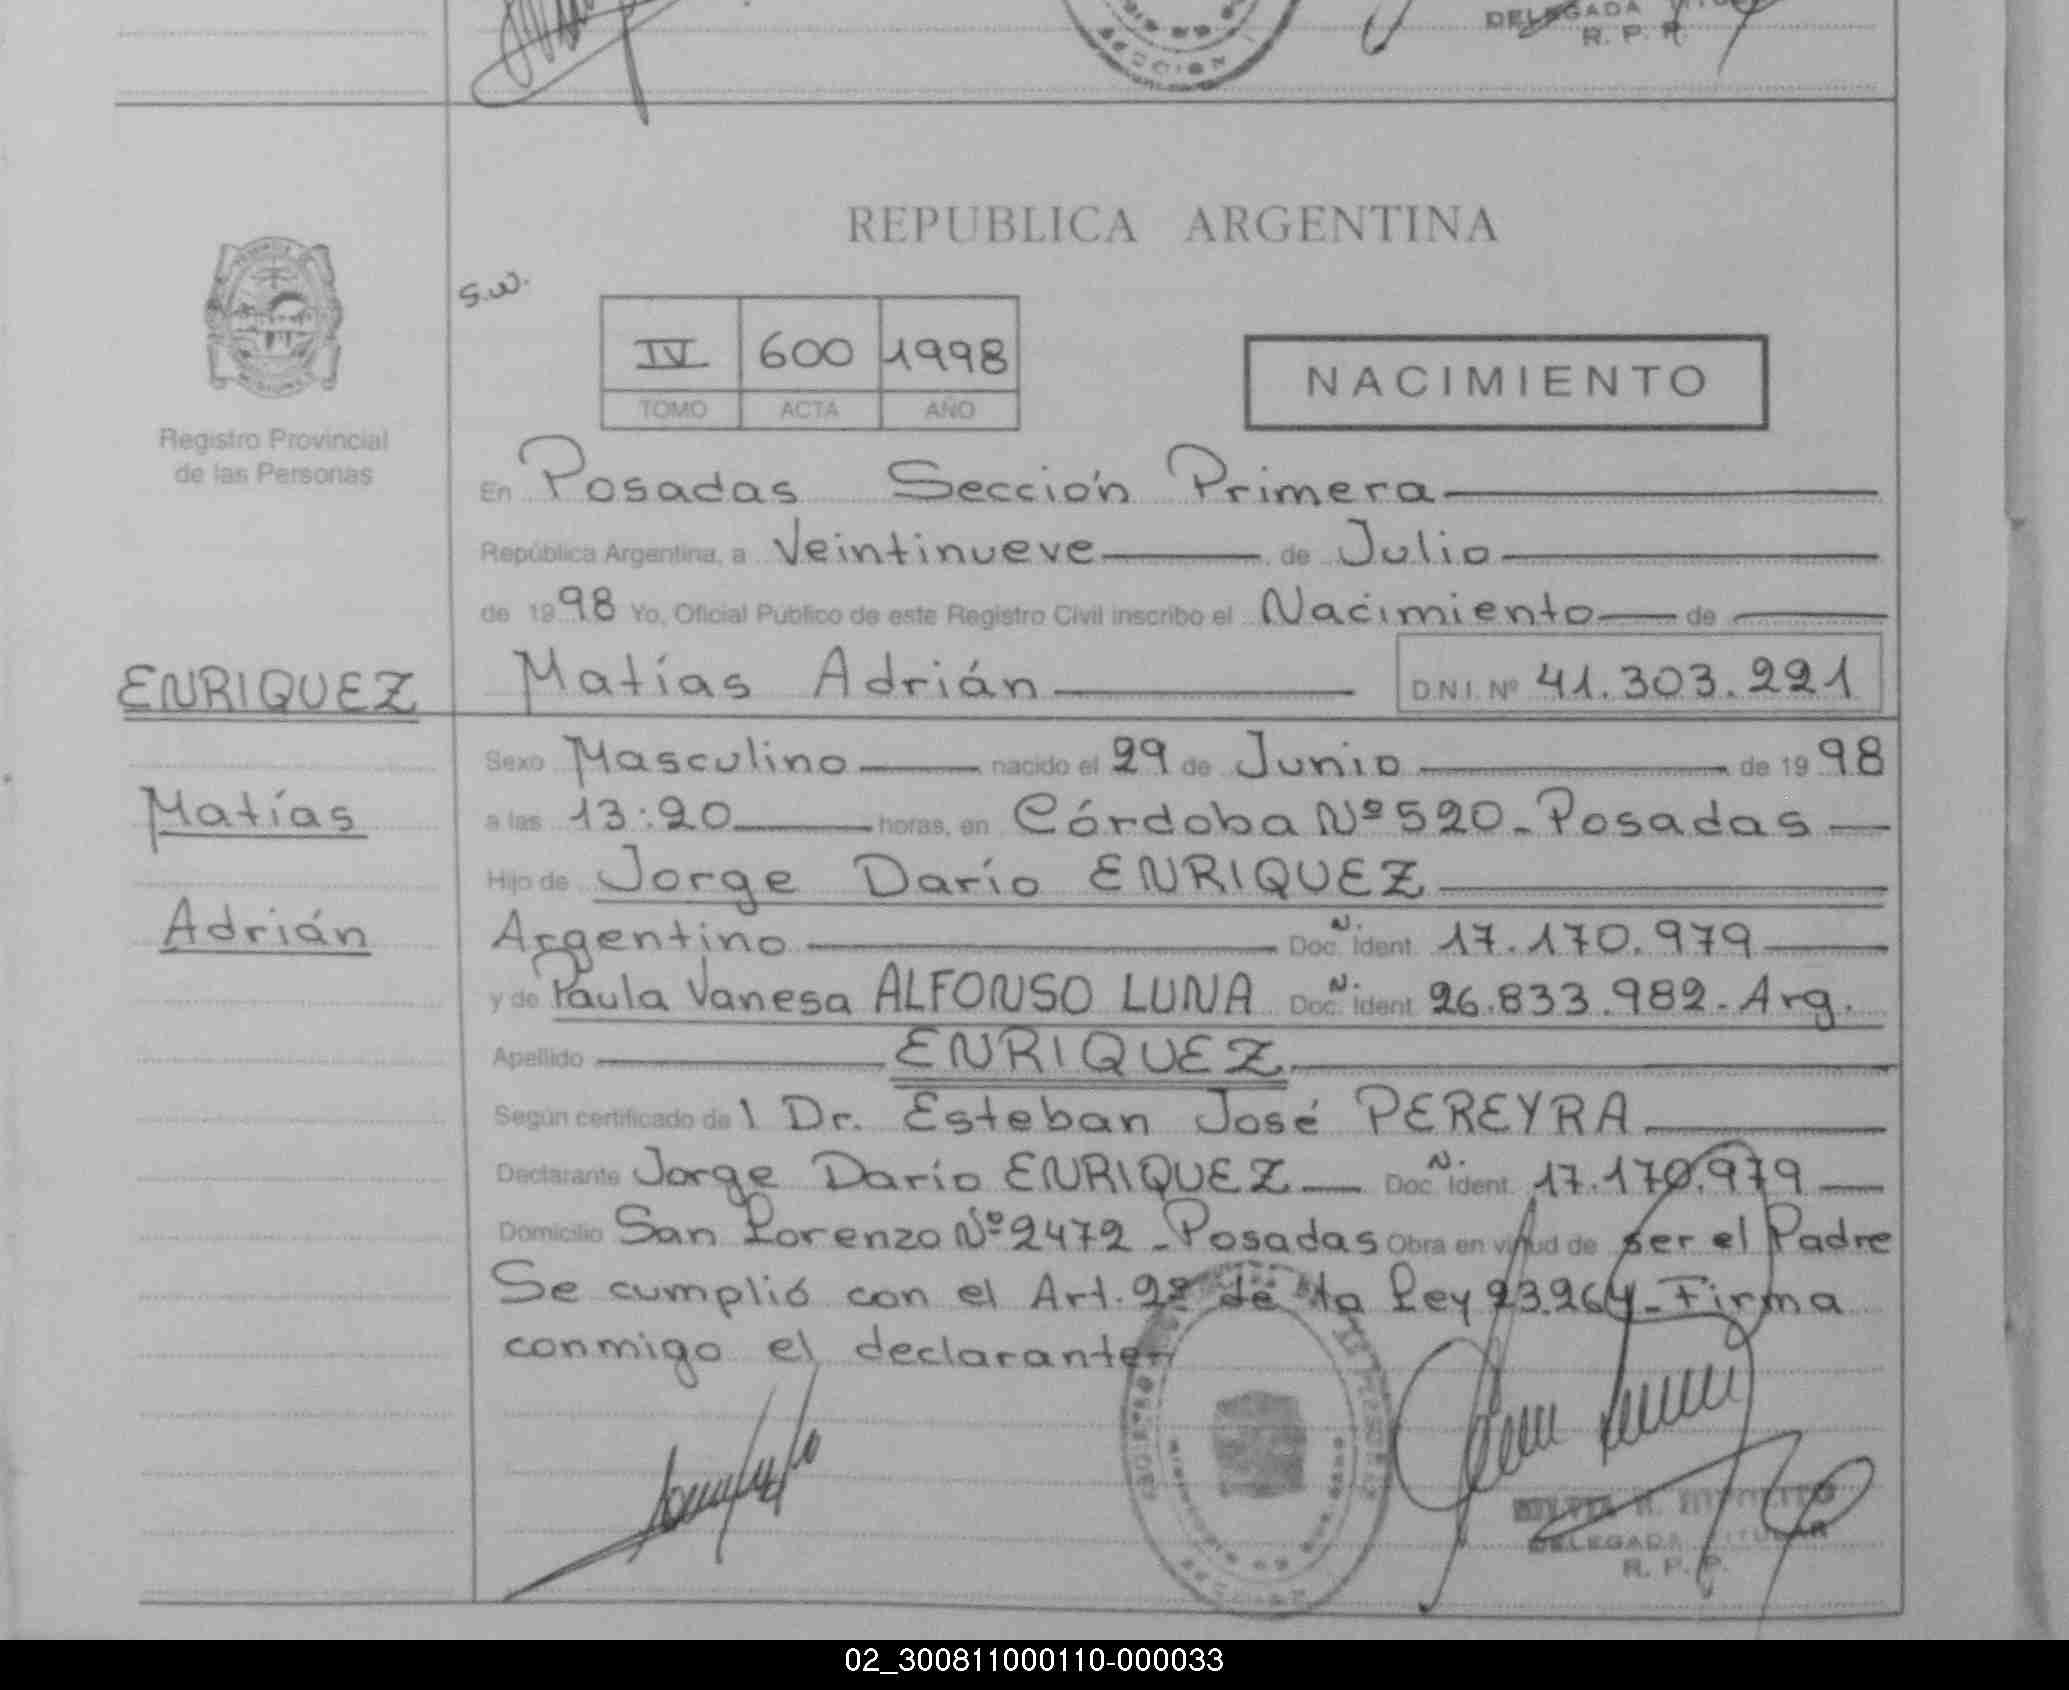 DELEGADA TITULAR
R. P. P.
SECCION
REPUBLICA ARGENTINA
s.w.
IV 600 1998
TOMO ACTA AÑO
NACIMIENTO
Registro Provincial
de las Personas
En Posadas Sección Primera
República Argentina, a Veintinueve de Julio
de 1998 Yo, Oficial Público de este Registro Civil inscribo el Nacimiento de
ENRIQUEZ
Matías Adrián D.N.I. Nº 41.303.221
Sexo Masculino nacido el 29 de Junio de 1998
Matías
a las 13:20 horas, en Córdoba Nº 520 - Posadas
Hijo de Jorge Darío ENRIQUEZ
Adrián
Argentino Doc. N. Ident. 17.170.979
y de Paula Vanesa ALFONSO LUNA Doc. N. Ident. 26.833.982 - Arg.
Apellido ENRIQUEZ
Según certificado de l Dr. Esteban José PEREYRA
Declarante Jorge Darío ENRIQUEZ Doc. N. Ident. 17.170.979
Domicilio San Lorenzo Nº 2472 - Posadas Obra en virtud de ser el Padre
Se cumplió con el Art. 2º de la Ley 23.264 - Firma
conmigo el declarante
DELEGADA TITULAR
R. P. P.
02_300811000110-000033